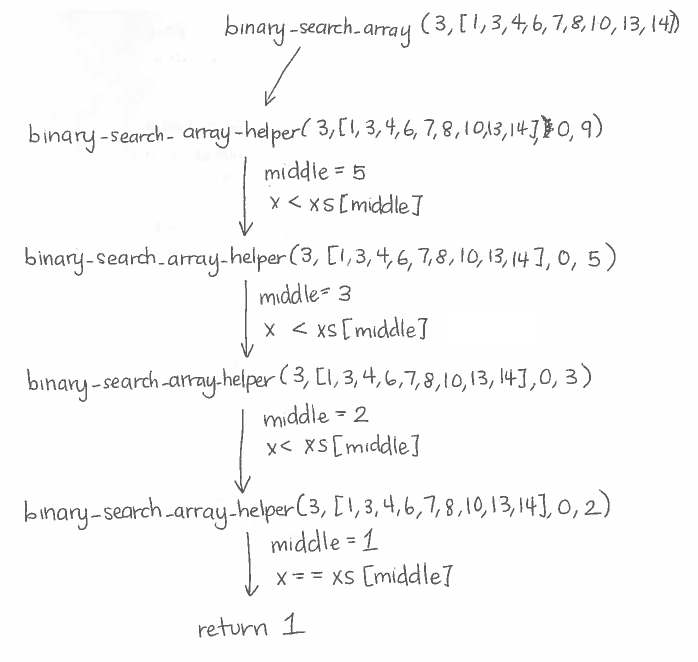 binary-search-array (3, [1,3,4,6,7,8,10,13,14])
binary-search-array-helper(3,[1,3,4,6,7,8,10,13,14], 0, 9)
middle = 5
x < xs[middle]
binary-search-array-helper(3, [1,3,4,6,7,8,10,13,14], 0, 5)
middle = 3
x < xs[middle]
binary-search-array-helper(3, [1,3,4,6,7,8,10,13,14],0,3)
middle = 2
x < xs[middle]
binary-search-array-helper(3, [1,3,4,6,7,8,10,13,14],0,2)
middle = 1
x == xs[middle]
return 1